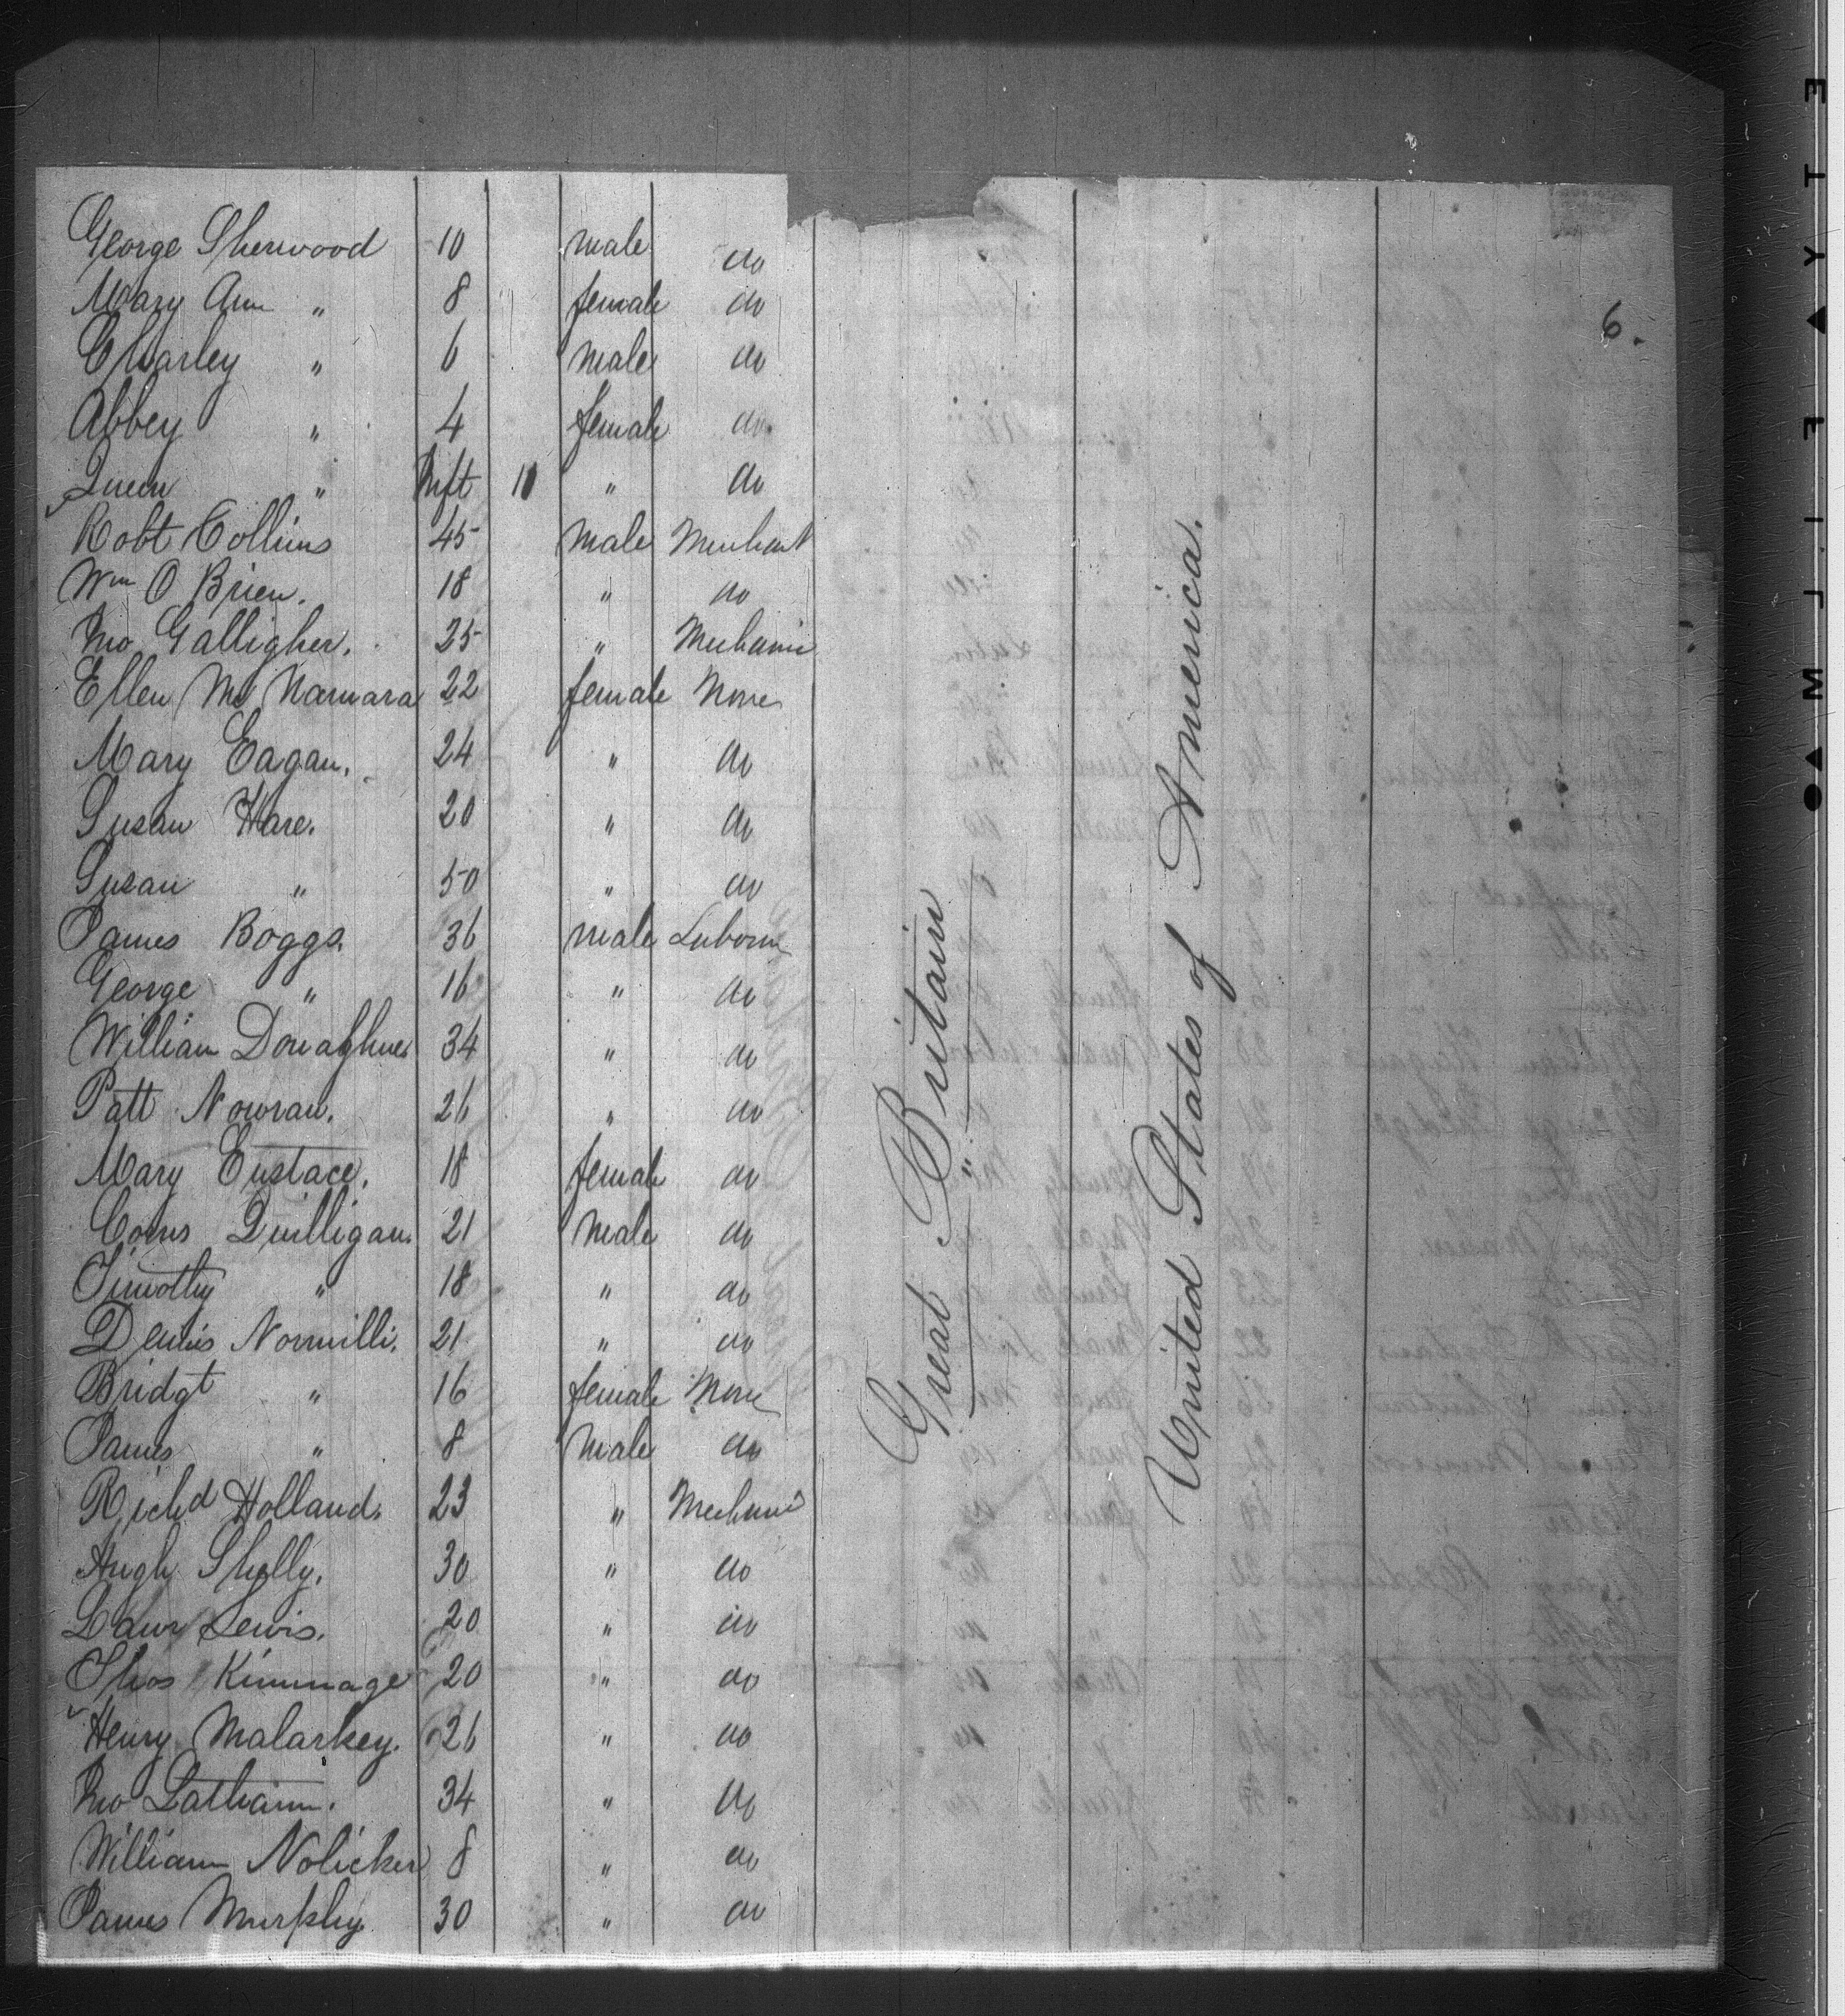 George Sherwood 10 male do
Mary Ann " 8 female do
Charley " 6 male do
Abbey " 4 female do
Queen " Inft 11 " do
Robt Collins 45 male Merchant
Wm O Brien. 18 " do
Jno Galligher. 25 " Mechanic
Ellen Mc Namara 22 female None
Mary Eagan. 24 " do
Susan Hare. 20 " do
Susan " 50 " do
James Boggs. 36 male Laborer
George " 16 " do
William Donaghue. 34 " do
Patt Nowran. 26 " do
Mary Eustace. 18 female do
Corns Quilligan. 21 male do
Timothy " 18 " do
Dennis Normilli. 21 " do
Bridgt " 16 female None
James " 8 male do
Richd Holland. 23 " Mechanic
Hugh Shelly. 30 " do
Laur Lewis. 20 " do
Thos Kimmage 20 " do
Henry Malarkey. 26 " do
Jno Latham. 34 " do
William Nolicker 8 " do
James Murphy. 30 " do
Great Britain
"
United States of America.
6.